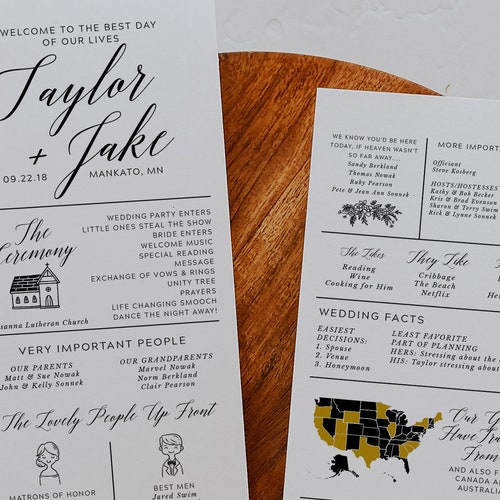 WELCOME TO THE BEST DAY
OF OUR LIVES
Taylor
+ Jake
09.22.18
MANKATO, MN
The
Ceremony
WEDDING PARTY ENTERS
LITTLE ONES STEAL THE SHOW
BRIDE ENTERS
WELCOME MUSIC
SPECIAL READING
MESSAGE
EXCHANGE OF VOWS & RINGS
UNITY TREE
PRAYERS
LIFE CHANGING SMOOCH
DANCE THE NIGHT AWAY!
Lutheran Church
VERY IMPORTANT PEOPLE
OUR PARENTS
Matt & Sue Nowak
John & Kelly Sonnek
OUR GRANDPARENTS
Marvel Nowak
Norm Berkland
Clair Pearson
The Lovely People Up Front
MATRONS OF HONOR
BEST MEN
Jared Swim
WE KNOW YOU'D BE HERE
TODAY, IF HEAVEN WASN'T
SO FAR AWAY....
Sandy Berkland
Thomas Nowak
Ruby Pearson
Pete & Jean Ann Sonnek
MORE IMPORT
Officiant
Steve Kosberg
HOSTS/HOSTESSES
Kathy & Bob Becker
Kris & Brad Evenson
Sharon & Terry Swim
Rick & Lynne Sonnek
She Likes
Reading
Wine
Cooking for Him
They Like
Cribbage
The Beach
Netflix
WEDDING FACTS
EASIEST
DECISIONS:
1. Spouse
2. Venue
3. Honeymoon
LEAST FAVORITE
PART OF PLANNING
HERS: Stressing about the
HIS: Taylor stressing about
Our
Have Tra
From
AND ALSO F
CANADA
AUSTRALI